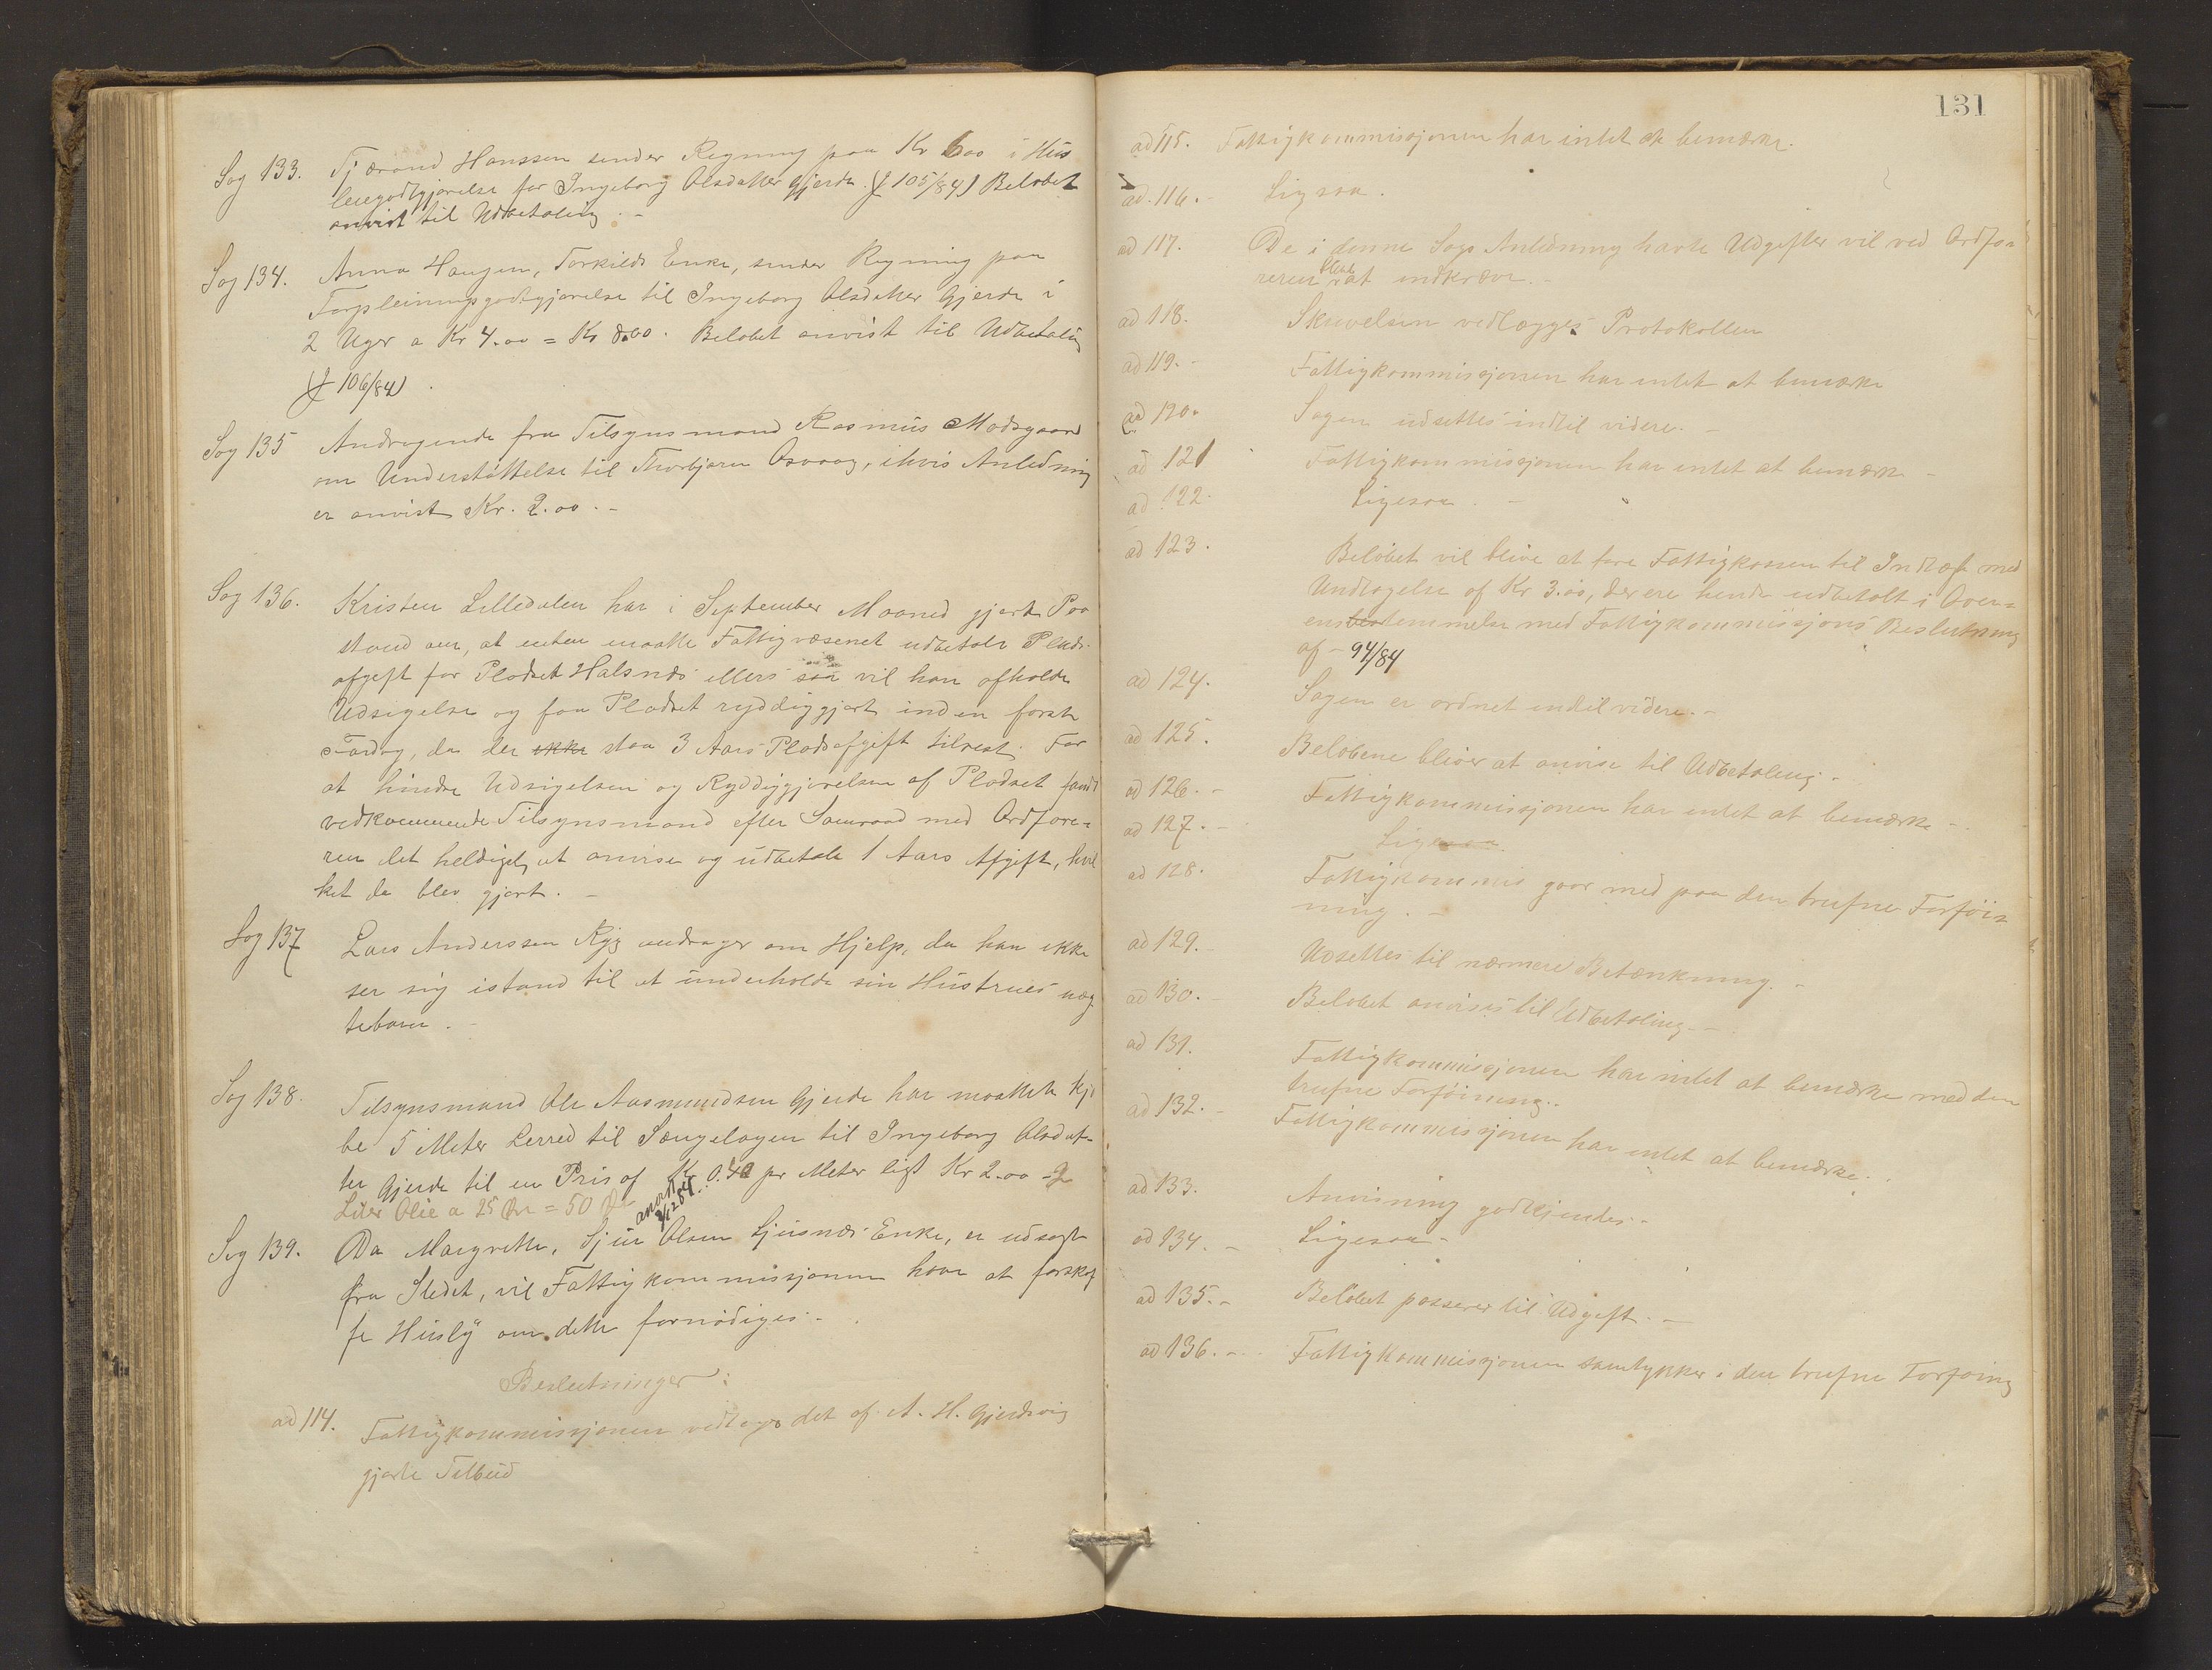 Sag 133. Tjærand Hanssen sender Regning paa Kr 6.00 i Hus
leiegodtgjørelse for Ingeborg Olsdatter Gjerde. (J 105/84) Beløbet
anvist til Udbetaling. -
Sag 134. Anna Haugen, Torkilds Enke, sender Regning paa
Forpleiningsgodtgjørelse til Ingeborg Olsdatter Gjerde i
2 Uger a Kr 4.00 = Kr 8.00. Beløbet anvist til Udbetaling
(J 106/84).
Sag 135 Andragende fra Tilsynsmand Rasmus Modsgaard
om Understøttelse til Thorbjørn Osvaag, i hvis Anledning
er anvist Kr. 2.00. -
Sag 136. Kristen Lilledalen har i September Maaned gjort Paa
stand om, at enten maatte Fattigvæsenet udbetale Plads-
afgift for Pladset Halsnæs ellers saa vil han afholde
Udsigelse og faa Pladset ryddiggjort inden første
Fardag, da der ikke staa 3 Aars Pladsafgift tilrest. For
at hindre Udsigelsen og Ryddiggjørelsen af Pladset fandt
vedkommende Tilsynsmand efter Samraad med Ordføre=
ren det heldigst, at anvise og udbetale 1 Aars Afgift, hvil
ket da blev gjort. -
Sag 137 Lars Anderssen Ryg andrager om Hjelp, da han ikke
ser sig istand til at underholde sin Hustrues uæg
tebarn. -
Sag 138. Tilsynsmand Ole Aasmundsen Gjerde har maattet kjø
be 5 Meter Lerred til Sængelagen til Ingeborg Olsdat-
ter Gjerde til en Pris af Kr 0.40 pr Meter ligt Kr 2.00 - 2
Liter Olie a 25 Øre = 50 Øre anvist 3/12 84.
Sag 139. Da Margrethe, Sjur Olsen Ljusnæs Enke, er udsagt
fra Stedet, vil Fattigkommissjonen have at forskaf
fe Husly om dette fornødiges -
Beslutninger:
ad 114. Fattigkommissjonen vedtager det af A. H. Gjerdsvig
gjorte Tilbud
131
ad 115. Fattigkommissjonen har intet at bemærke.
ad. 116. - Ligesaa.
ad 117. De i denne Sags Anledning havte Udgifter vil ved Ordfø=
reren blive at indkræve. -
ad 118. Skrivelsen vedlægges Protokollen
ad 119. - Fattigkommissjonen har intet at bemærke
ad 120. Sagen udsettes indtil videre. -
ad 121 Fattigkommissjonen har intet at bemærke -
ad 122. Ligesaa. -
ad 123. Beløbet vil blive at føre Fattigkassen til Indtægt med
Undtagelse af Kr 3.00, der ere hende udbetalt i Over=
ensstemmelse med Fattigkommissjons Beslutning
af - 94/84
ad 124. Sagen er ordnet indtil videre. -
ad 125. Beløbene bliver at anvise til Udbetaling. -
ad 126. - Fattigkommissjonen har intet at bemærke -
ad 127. - Ligesaa.
ad 128. Fattigkommis gaar med paa den trufne Forføi=
ning. -
ad 129. Udsettes til nærmere Betænkning. -
ad 130. - Beløbet anvises til Udbetaling. -
ad 131. Fattigkommissjonen har intet at bemærke med den
trufne Forføining.
ad 132. - Fattigkommissjonen har intet at bemærke.
ad 133. Anvisning godkjendes. -
ad 134. - Ligesaa -
ad 135. - Beløbet passerer til Udgift. -
ad 136. - Fattigkommissjonen samtykker i den trufne Forføing